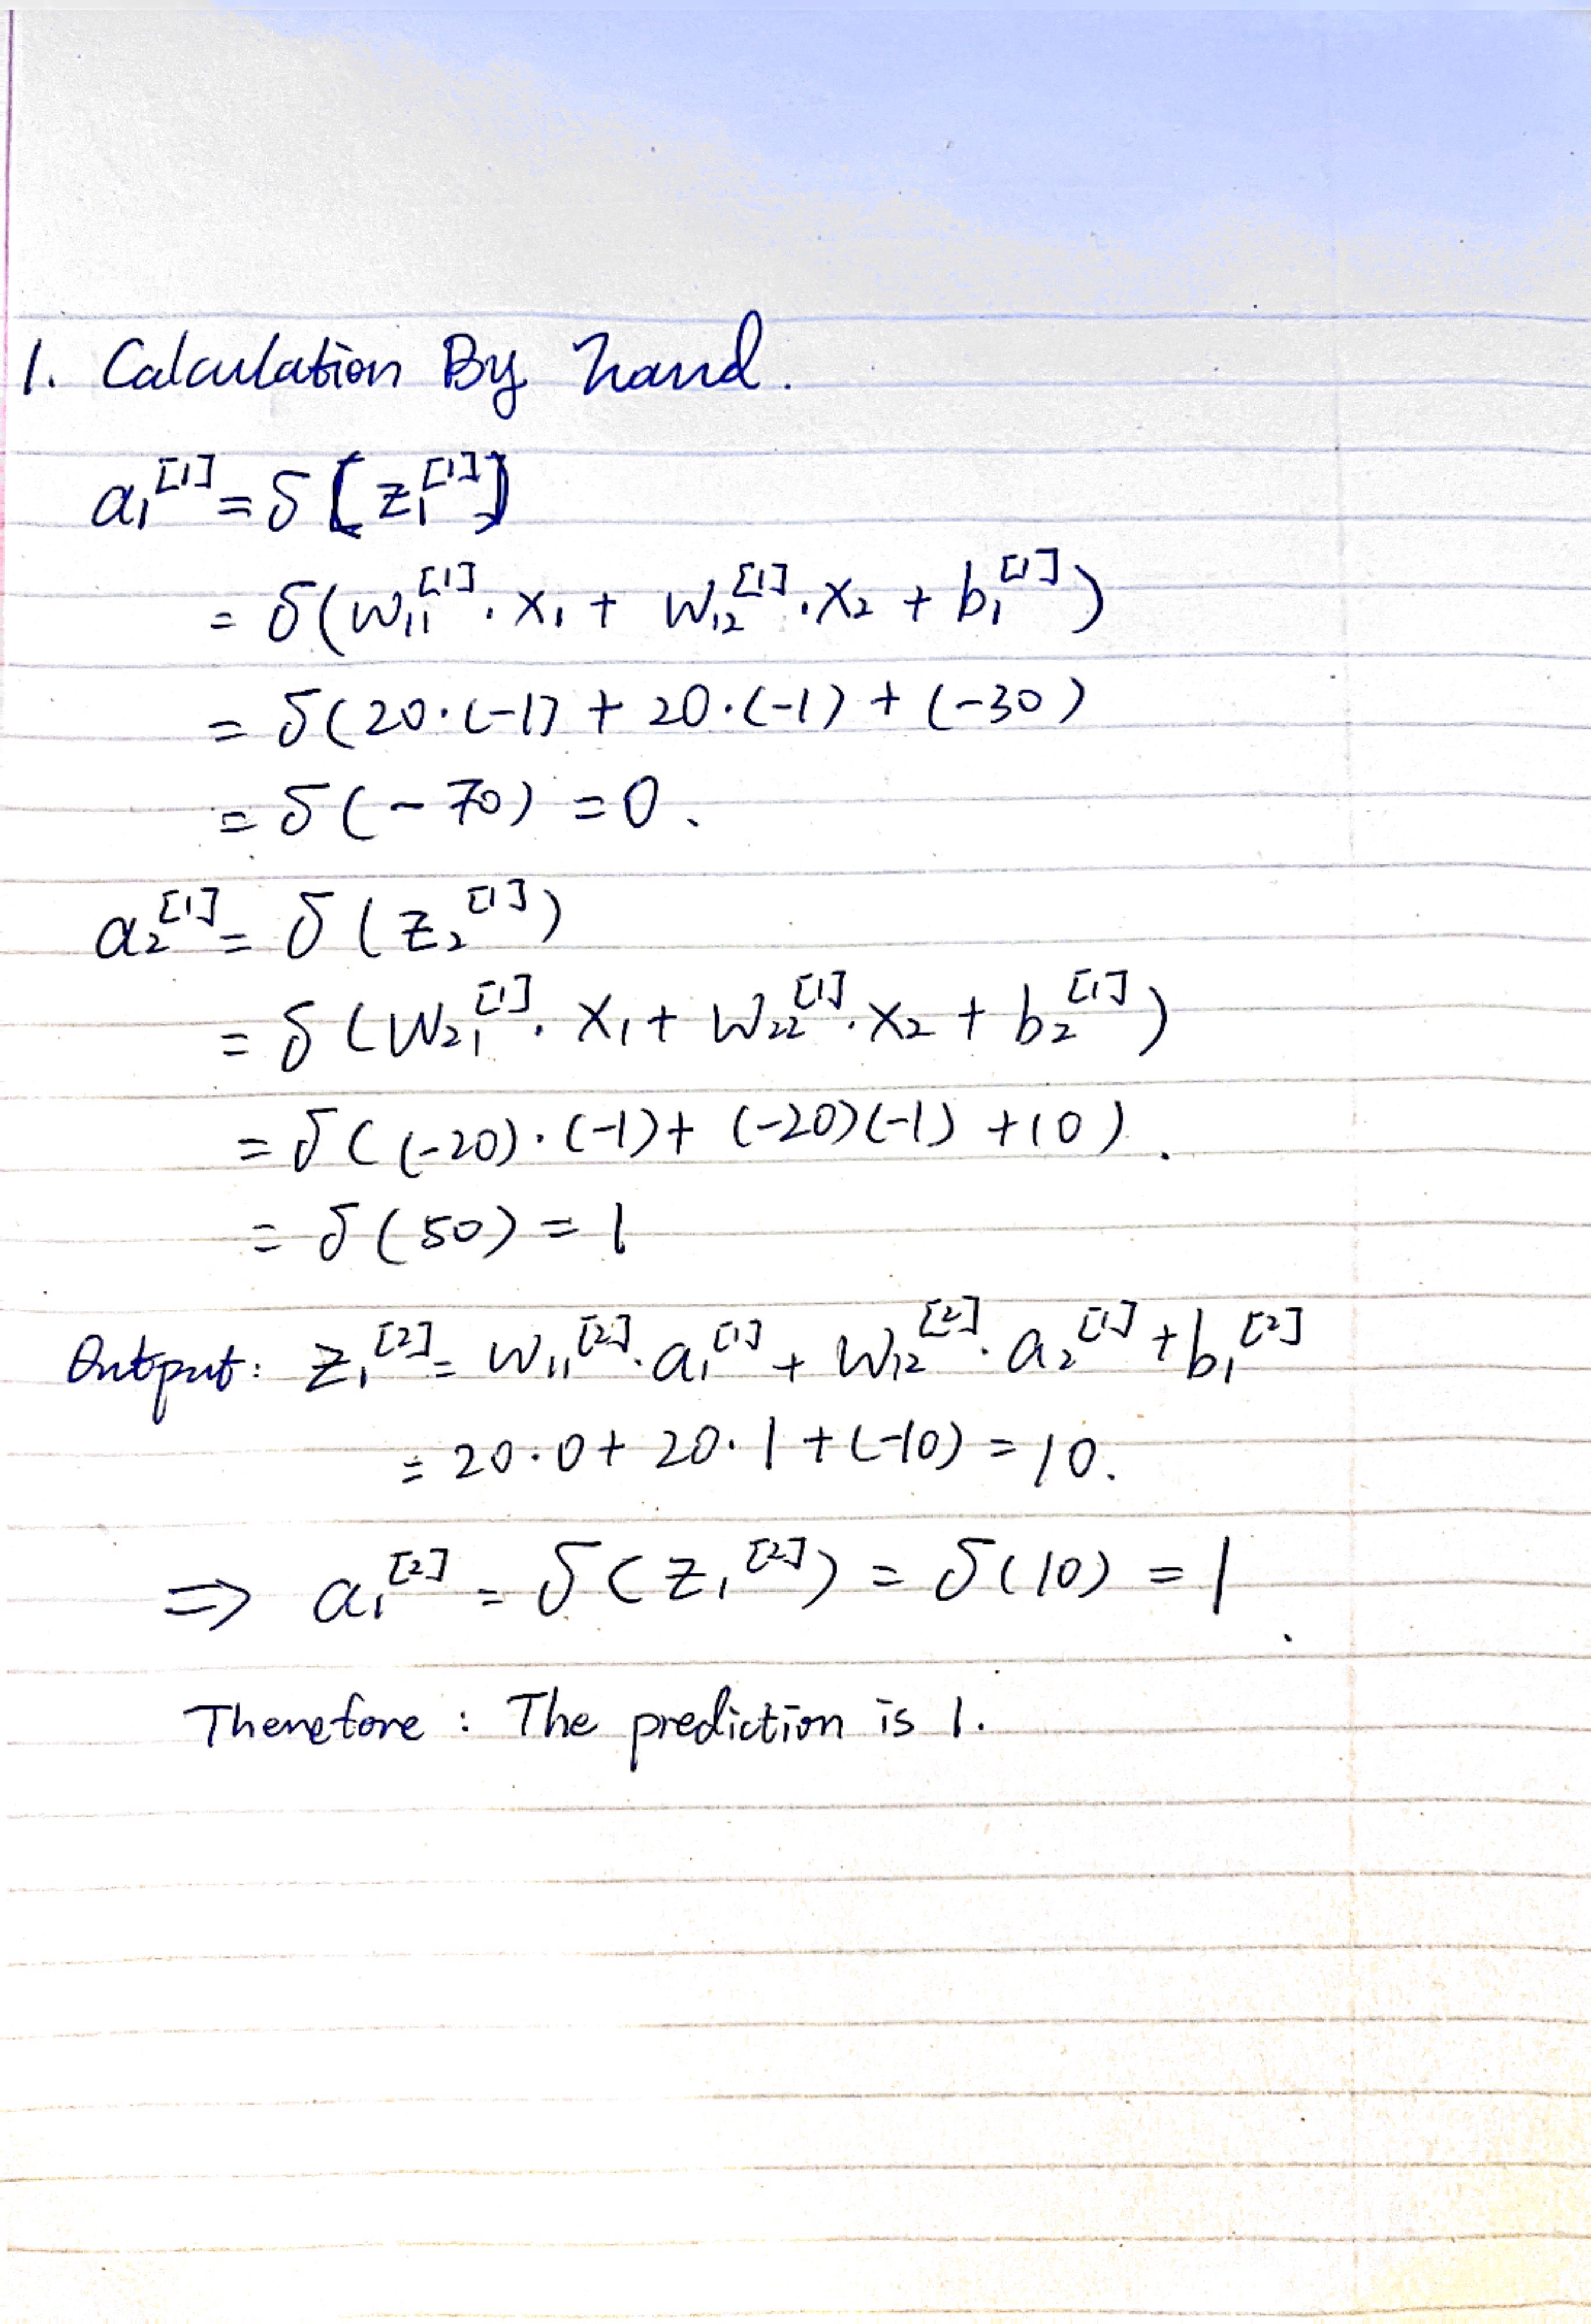 1. Calculation By hand.
a₁^[1] = δ [z₁^[1]]
= δ(w₁₁^[1] · x₁ + w₁₂^[1] · x₂ + b₁^[1])
= δ(20·(-1) + 20·(-1) + (-30)
= δ(-70) = 0.
a₂^[1] = δ(z₂^[1])
= δ(w₂₁^[1] · x₁ + w₂₂^[1] · x₂ + b₂^[1])
= δ((-20)·(-1) + (-20)(-1) + 10).
= δ(50) = 1
Output: z₁^[2] = w₁₁^[2] · a₁^[1] + w₁₂^[2] · a₂^[1] + b₁^[2]
= 20·0 + 20·1 + (-10) = 10.
⇒ a₁^[2] = δ(z₁^[2]) = δ(10) = 1.
Therefore : The prediction is 1.